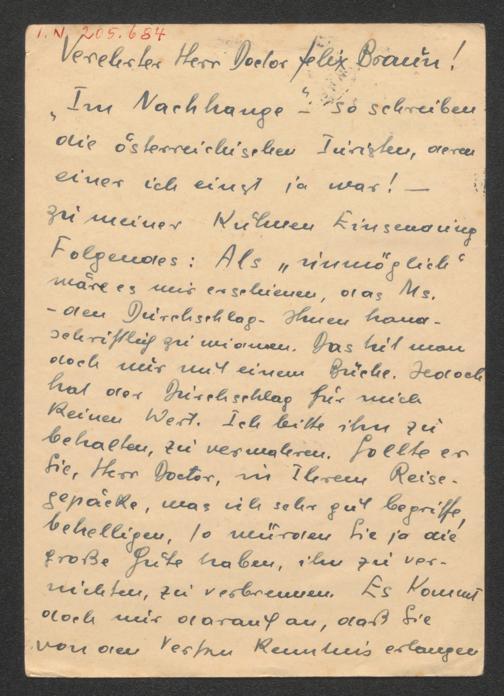 I.N. 205.684
Verehrter Herr Doctor Felix Braun!
„Im Nachhange" – so schreiben
die österreichischen Juristen, deren
einer ich einst ja war! —
zu meiner kühnen Einsendung
Folgendes: Als „unmöglich"
wäre es mir erschienen, das Ms.
– den Durchschlag – Ihnen hand-
schriftlich zu widmen. Das tut man
doch nur mit einem Buche. Jedoch
hat der Durchschlag für mich
keinen Wert. Ich bitte ihn zu
behalten, zu verwahren. Sollte er
Sie, Herr Doctor, in Ihrem Reise-
gepäcke, was ich sehr gut begriffe,
behelligen, so würden Sie ja die
große Güte haben, ihn zu ver-
nichten, zu verbrennen. Es kommt
doch nur darauf an, daß Sie
von den Versen Kenntnis erlangen